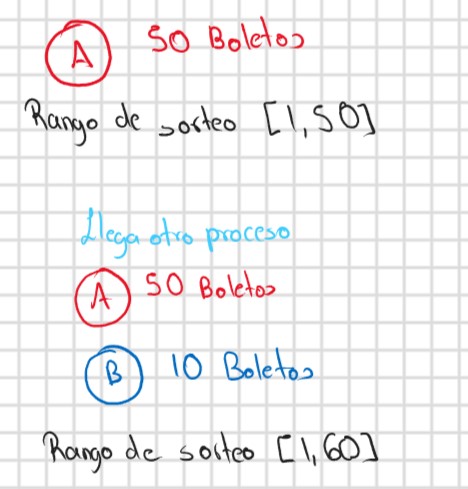 A 50 Boletos
Rango de sorteo [1,50]
Llega otro proceso
A 50 Boletos
B 10 Boletos
Rango de sorteo [1,60]